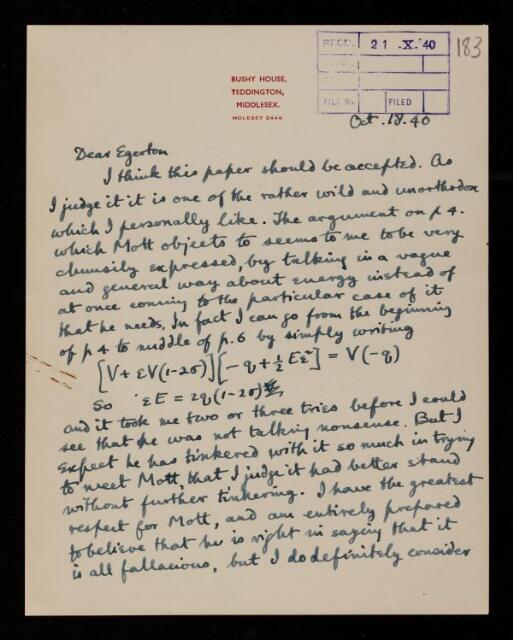 RECD. 21 .X.'40
183
FILE No. FILED
BUSHY HOUSE,
TEDDINGTON,
MIDDLESEX.
MOLESEY 2444.
Oct. 18. 40
Dear Egerton
I think this paper should be accepted. As
I judge it it is one of the rather wild and unorthodox
which I personally like. The argument on p 4.
which Mott objects to seems to me to be very
clumsily expressed, by talking in a vague
and general way about energy instead of
at once coming to the particular case of it
that he needs. In fact I can go from the beginning
of p 4 to middle of p. 6 by simply writing
[V + εV(1-2σ)][-q + ½Eε²] = V(-q)
So εE = 2q(1-2σ)
and it took me two or three tries before I could
see that he was not talking nonsense. But I
expect he has tinkered with it so much in trying
to meet Mott, that I judge it had better stand
without further tinkering. I have the greatest
respect for Mott, and am entirely prepared
to believe that he is right in saying that it
is all fallacious, but I do definitely consider